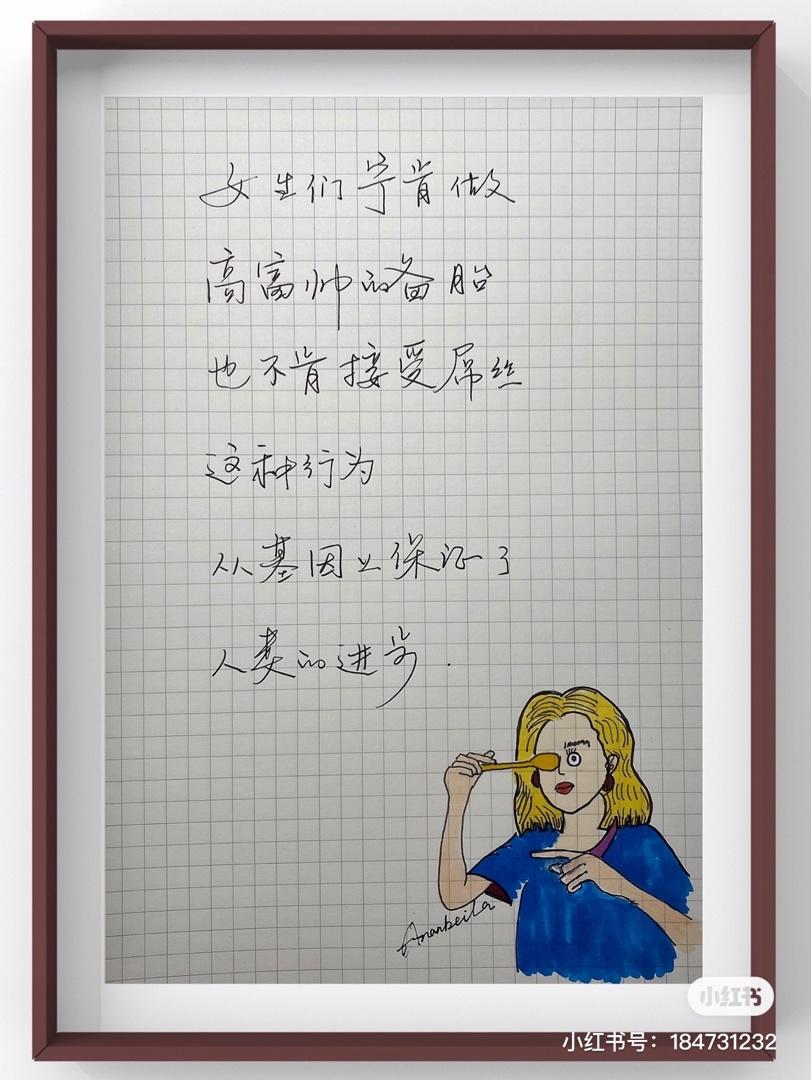 女生们宁肯做
高富帅的备胎
也不肯接受屌丝
这种行为
从基因上保证了
人类的进步.
Anarbeila
小红书
小红书号：184731232